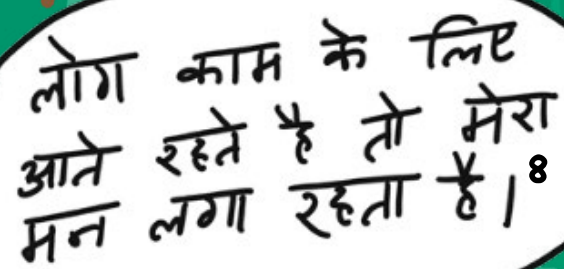 लोग काम के लिए
आते रहते है तो मेरा
मन लगा रहता है। 8